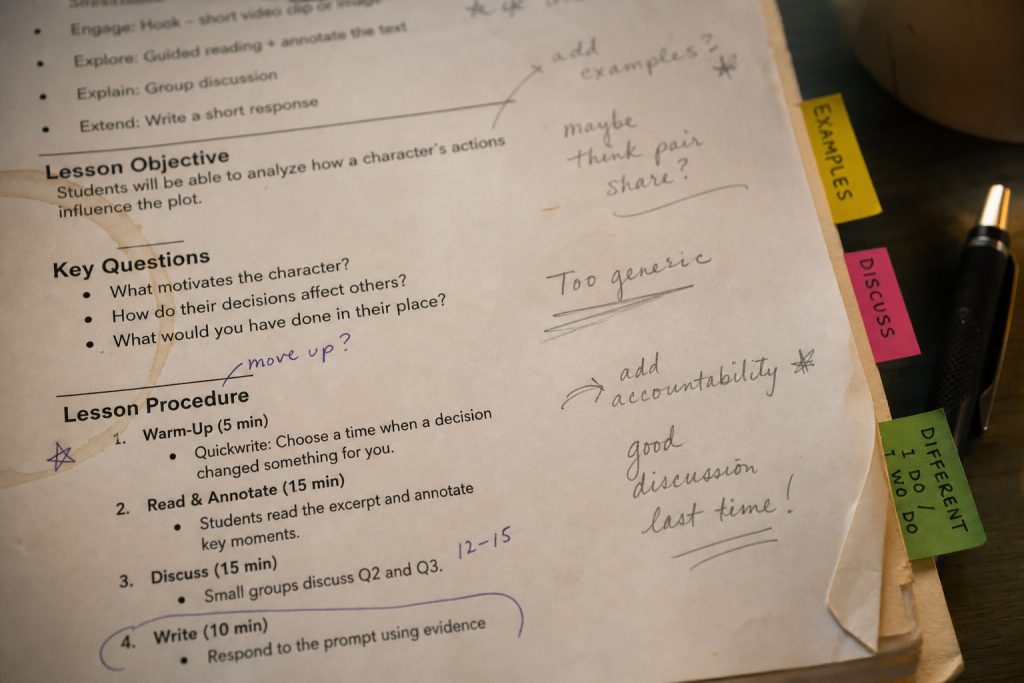 Engage: Hook – short video clip or image
Explore: Guided reading + annotate the text
Explain: Group discussion
Extend: Write a short response
add
examples?
maybe
think pair
share?
Lesson Objective
Students will be able to analyze how a character's actions
influence the plot.
Key Questions
What motivates the character?
How do their decisions affect others?
What would you have done in their place?
Too generic
move up?
add
accountability
Lesson Procedure
1. Warm-Up (5 min)
Quickwrite: Choose a time when a decision
changed something for you.
2. Read & Annotate (15 min)
Students read the excerpt and annotate
key moments.
good
discussion
last time!
3. Discuss (15 min)
Small groups discuss Q2 and Q3.
12-15
4. Write (10 min)
Respond to the prompt using evidence
EXAMPLES
DISCUSS
DIFFERENT
I DO /
WO DO